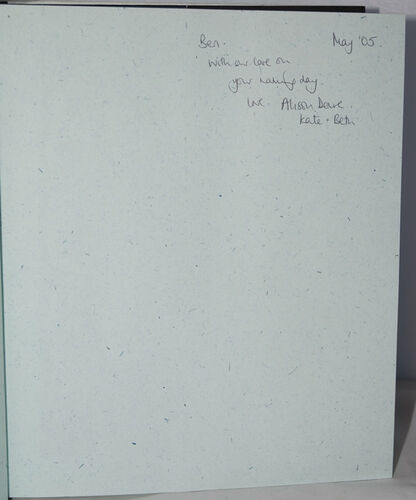 Ben. May '05.
With our love on
your naming day.
Luv. Alison Dave.
Kate + Beth